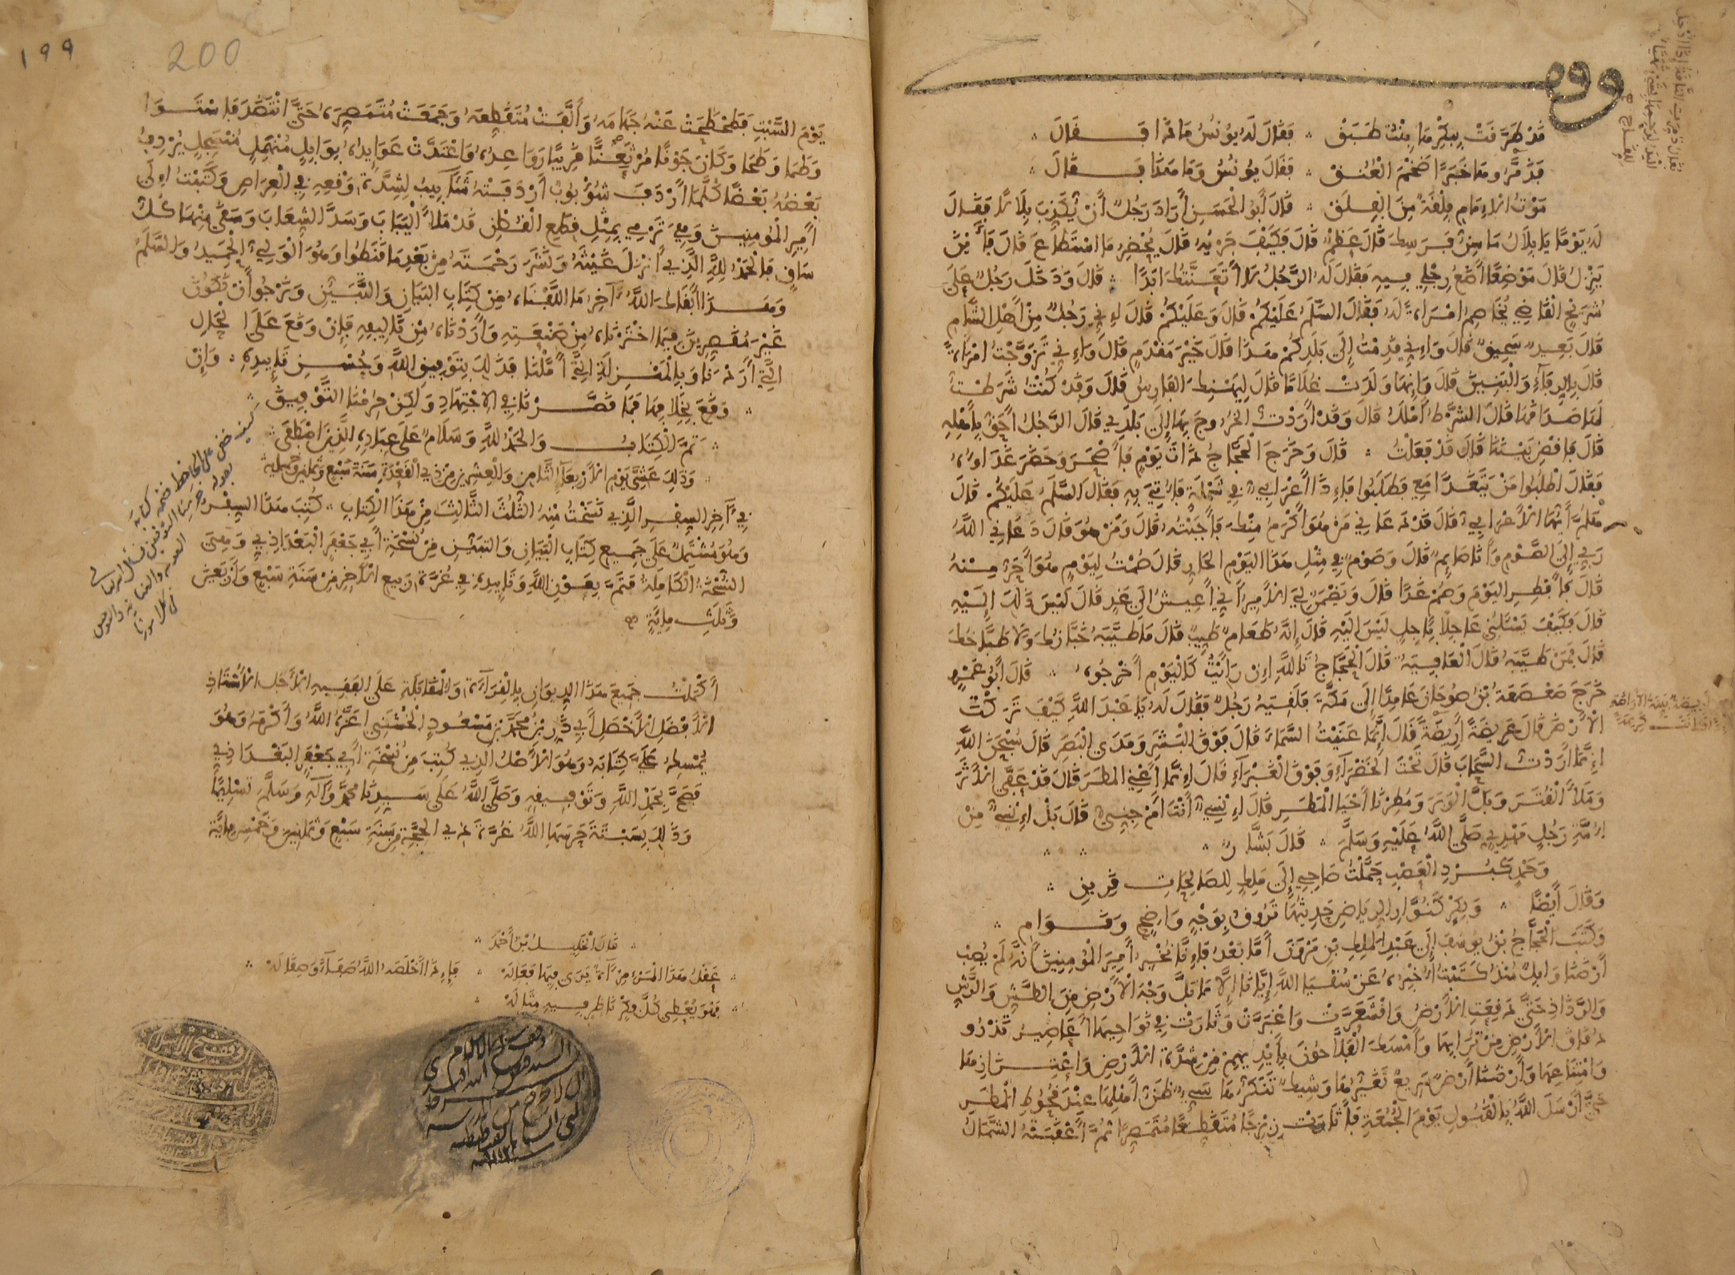 قد طرقت ببكرها بنت طبق فقال له يونس ماذا فقال
فذمروها خبرا ضخم العنق فقال يونس وما هذا فقال
موت الإمام فلقة من الفلق قال أبو الحسن أراد رجل أن يكذب بلالا فقال
له يوما يا بلال ما سن فرسك قال عظم قال فكيف جريه قال يحضر ما استطاع قال فأين
ينزل قال موضعا أضع رجلي فيه فقال له الرجل لا أتعنتك أبدا قال ودخل رجل على
شريح القاضي يخاصم امرأة له فقال السلام عليكم قال وعليكم قال إني رجل من أهل الشام
قال بعيد سحيق قال وإني قدمت إلى بلدكم هذا قال خير مقدم قال وإني تزوجت امرأة
قال بالرفاء والبنين قال وإنها ولدت غلاما قال ليهنك الفارس قال وقد كنت شرطت
لها صداقها قال الشرط أملك قال وقد أردت الخروج بها إلى بلدي قال الرجل أحق بأهله
قال فاقض بيننا قال قد فعلت قال وخرج الحجاج ذات يوم فأصحر وحضر غداؤه
فقال اطلبوا من يتغدى معي فطلبوا فإذا أعرابي في شملة فأتي به فقال السلام عليكم قال
هلم أيها الأعرابي قال قد دعاني من هو أكرم منك فأجبته قال ومن هو قال دعاني الله
ربي إلى الصوم وأنا صائم قال وصوم في مثل هذا اليوم الحار قال صمت ليوم هو أحر منه
قال فأفطر اليوم وصم غدا قال ويضمن لي الأمير أني أعيش إلى غد قال ليس ذلك إليه
قال فكيف تسألني عاجلا بآجل ليس إليه قال إنه طعام طيب قال ما طيبه خبازك ولا طباخك
قال فمن طيبه قال العافية قال الحجاج تالله إن رأيت كاليوم أخرجوه قال أبو عمرو
خرج صعصعة بن صوحان عائدا إلى مكة فلقيه رجل فقال له يا عبد الله كيف تركت
الأرض قال عريضة أريضة قال إنما عنيت السماء قال فوق البشر ومدى البصر قال سبحان الله
إنما أردت السحاب قال تحت الخضراء وفوق الغبراء قال إنما أعني المطر قال قد عفى الأثر
وملأ القتر وبل الوبر ومطرنا أحيا المطر قال إنسي أنت أم جني قال بل إنسي من
أمة رجل مهدي صلى الله عليه وسلم قال بشار
وحمد كبرد العصب حملت صاحبي إلى ملك للصالحات قرين
وقال أيضا وبكر كنوار الرياض حديثها تروق بوجه واضح وقوام
وكتب الحجاج بن يوسف إلى عبد الملك بن مروان أما بعد فإنا نخبر أمير المؤمنين أنه لم يصب
أرضنا وابل منذ كتبت أخبره عن سقيا الله إيانا إلا ما بل وجه الأرض من الطش والرش
والرذاذ حتى دقعت الأرض واقشعرت واغبرت وثارت في نواحيها أعاصير تذرو
دقاق الأرض من ترابها وأمسك الفلاحون بأيديهم من شدة الأرض واعتزازها
وامتناعها وأرضنا أرض سريع تغيرها وشيك تنكرها سيئ ظن أهلها عند قحوط المطر
حتى أرسل الله بالقبول يوم الجمعة فأثارت زبرجا متقطعا متمصرا ثم أعقبته الشمال
يوم السبت فطحطحت عنه جهامه وألفت متقطعه وجمعت متمصره حتى انتضد فاستوى
وطما وطحا وكان جونا مرثعنا قريبا رواعده واعتدت عوائده بوابل منهمل منسجل يردف
بعضه بعضا كلما أردف شؤبوب أردفته شآبيب لشدة وقعه في العراص وكتبت إلى
أمير المؤمنين وهي ترمي بمثل قطع القطن قد ملأ اليباب وسد الشعاب وسقى منها كل
ساق فالحمد لله الذي أنزل غيثه ونشر رحمته من بعد ما قنطوا وهو الولي الحميد والسلام
وهذا أبقاك الله آخر ما ألفناه من كتاب البيان والتبيين ونرجو أن نكون
غير مقصرين فيما اخترناه من صنعته وأردناه من تأليفه فإن وقع على الحال
التي أردنا وبالمنزلة التي أملنا فذلك بتوفيق الله وحسن تأييده وإن
وقع بخلافها فما قصرنا في الاجتهاد ولكن حرمنا التوفيق
تم الكتاب والحمد لله وسلام على عباده الذين اصطفى
وذلك عشي يوم الأربعاء الثامن والعشرين من ذي القعدة سنة سبع وثمانين وخمسمائة
في آخر السفر الذي نسخت منه الثلث الثالث من هذا الكتاب كتب هذا السفر
وهو مشتمل على جميع كتاب البيان والتبين من نسخة أبي جعفر البغدادي وهي
النسخة الكاملة فتم بعون الله وتأييده في غرة ربيع الآخر من سنة سبع وأربعين
وثلث مائة
أكملت جميع هذا الديوان بالقراءة والمقابلة على الفقيه الأجل الأستاذ
الأفضل الأحفل أبي ذر بن محمد بن مسعود الخشني أعزه الله وأكرمه وهو
يمسك علي كتابه وهو الأصل الذي كتب من نسخة أبي جعفر البغدادي
فصح بحمد الله وتوفيقه وصلى الله على سيدنا محمد وآله وسلم تسليما
وذلك بسبتة حرسها الله غرة ذي الحجة من سنة سبع وثمانين وخمس مائة
قال الخليل بن أحمد
عقل هذا المرء مرآة يرى فيها فعاله فإذا أخلصه الله صفاء وصقاله
فهو يعطي كل ناظر فيه مثاله
١٩٩
200